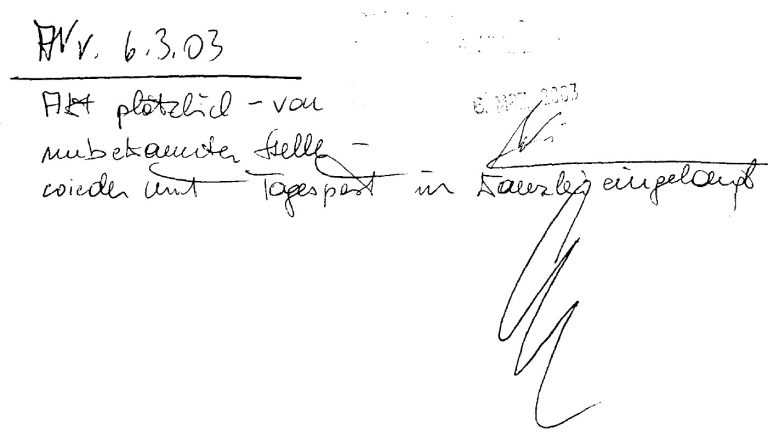 AV v. 6.3.03
6. MRZ. 2003
Akt plötzlich – von
unbekannter Stelle –
wieder mit Tagespost in Kanzlei eingelangt